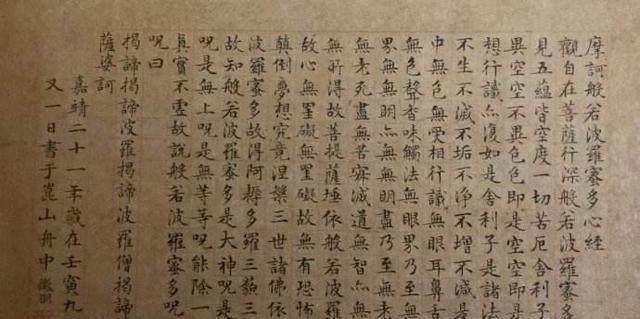 摩訶般若波羅蜜多心經
觀自在菩薩行深般若波羅蜜多
見五蘊皆空度一切苦厄舍利子
異空空不異色色即是空空即是
想行識亦復如是舍利子是諸法
不生不滅不垢不淨不增不減是
中無色無受相行識無眼耳鼻舌
無色聲香味觸法無眼界乃至無
界無無明亦無無明盡乃至無老
無老死盡無苦寂滅道無智亦無
無所得故菩提薩埵依般若波羅
故心無罣礙無罣礙故無有恐怖
顛倒夢想究竟涅槃三世諸佛依
波羅蜜多故得阿耨多羅三藐三
故知般若波羅蜜多是大神呪是
呪是無上呪是無等等呪能除一
真實不虛故說般若波羅蜜多呪
呪曰
揭諦揭諦波羅揭諦波羅僧揭諦
薩婆訶
嘉靖二十一年歲在壬寅九
又一日書于崑山舟中 徵明